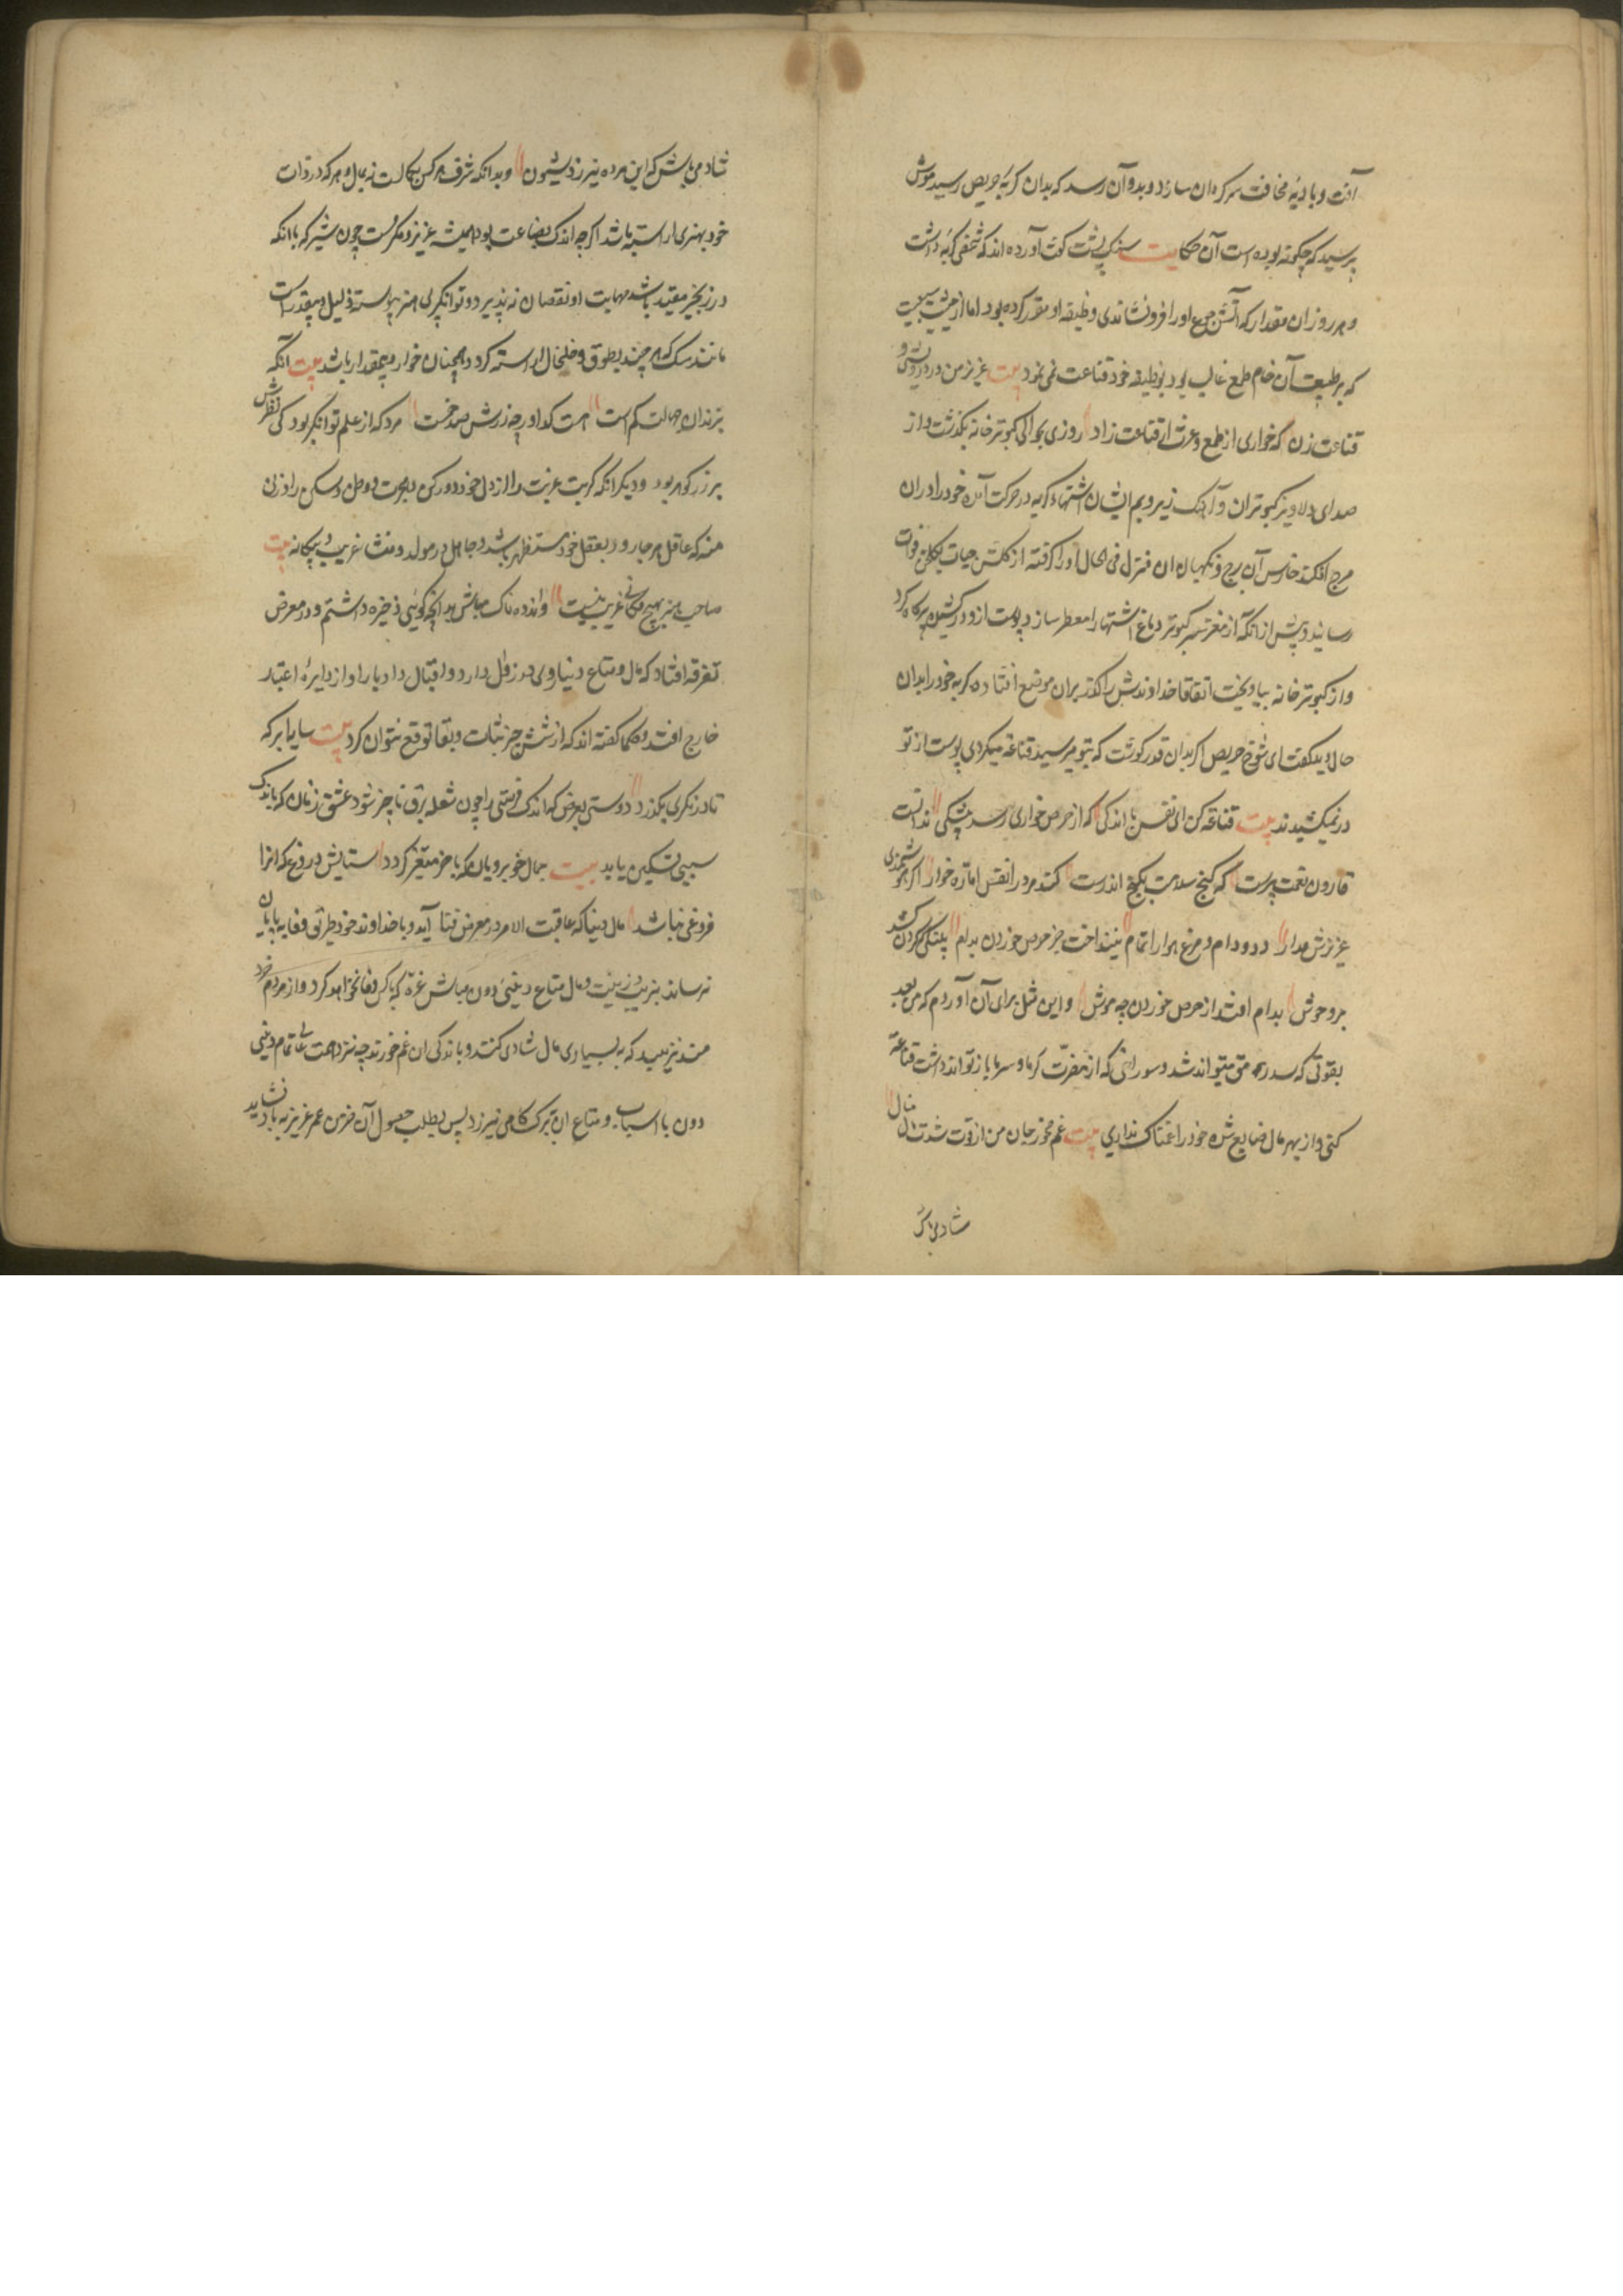 آفت و بادیه مخافت سر کردان سازد و بدو آن رسد که بدان کربهٔ حریص رسید موش
پرسید که چکونه بوده است آن حکایت سنک پشت کفت آورده اند که شخصی کربه داشت
و هر روز ان مقدار که آتش جوع او را فرو نشاندی وظیفه او مقرر کرده بود اما از حیثیت سبعیت
که بر طبیعت آن خام طمع غالب بود بوظیفه خود قناعت نمی نمود بیت عزیز من در درویشی و
قناعت زن که خواری از طمع و عزت از قناعت زاد روزی بحوالی کبوتر خانه بکذشت و از
صدای دلاویز کبوتران و آهنک زیر و بم ایشان اشتهاء کربه در حرکت آمده خود را در ان
برج افکند حارس آن برج و نکهبان ان منزل فی الحال او را کرفته از کلشن حیات بکلخن فوات
رسانید و پیش از انکه از مغز سر کبوتر دماغ اشتها را معطر سازد پوست از و در کشیده پر کاه کرد
و از کبوتر خانه بیاویخت اتفاقا خداوندش را کذر بران موضع افتاده کربه خود را بدان
حال دید کفت ای شوخ حریص اکر بدان قدر کوشت که بتو میرسید قناعة میکردی پوست از تو
در نمیکشیدند بیت قناعة کن ای نفس با اندکی که از حرص خواری رسد بیشکی ندانست
قارون نعمت پرست که کنج سلامت بکنج اندرست کند مرد را نفس اماره خوار اکر هوشمندی
عزیزش مدار دد و دام و مرغ هوا را تمام نینداخت جز حرص خوردن بدام پلنکی که کردن کشد
بر وحوش بدام افتد از حرص خوردن چه موش و این مثل برای آن آوردم که من بعد
بقوتی که سد رمق تواند شد و سوراخی که از مضرت کرما و سرما باز تواند داشت قناعة
کنی و از بهر مال ضایع شده خود را غمناک نداری بیت غم مخور جان من ار فوت شدت مال منال
شاد می باش
شاد می باش که این مرده نیرزد بشیون و بدانکه شرف هر کس بکمالست نه بمال و هر که در ذات
خود بهنری اراسته باشد اکر چه اندک بضاعت بود همیشه عزیز و مکرمست چون شیر که با انکه
در زنجیر مقید باشد مهابت او نقصان نه پذیرد و توانکر بی هنر پیوسته ذلیل و بیقدر است
مانند سک که هر چند بطوق و خلخال اراسته کردد همچنان خوار و بیمقدار باشد بیت آنکه
بزندان جهالت کم است هست کدا ور چه زرش صد خمست مرد که از علم توانکر بود کی نظرش
بر زر و کوهر بود و دیکر انکه کربت غربت را از دل خود دور کن و بهجرت و وطن و مسکن را وزن
منه که عاقل هر جا رود بعقل خود مستظهر باشد و جاهل در مولد و منشا غریب و بیکانه بیت
صاحب هنر بهیچ مکانی غریب نیست و اندوهناک مباش بدانچه کویی ذخیره داشتم و در معرض
تفرقه افتاد که مال و متاع دنیاوی در زوال دارد و اقبال و ادبار او از دایرهٔ اعتبار
خارج افتد و حکما کفته اند که از شش چیز ثبات و بقا توقع نتوان کرد بیت سایه ابر که
تا در نکری بکذرد دوستی بغرض که اندک فرصتی را چون شعله برق ناچیز شود عشق زنان که باندک
سببی تسکین یابد بیت جمال خوبرویان که باخر متغیر کردد ستایش دروغ که انرا
فروغی نباشد مال دنیا که عاقبت الامر در معرض فنا آید و با خداوند خود طریق وفا به پایان
نرساند بزیب و زینت و مال و متاع دنیئ دون مباش غره که با کس وفا نخواهد کرد و از مردم خرد
مند نزیبد که به بسیاری مال شادی کنند و باندکی ان غم خورند چه نزد همت عالی تمام دنیئ
دون با اسباب و متاع ان ببرک کاهی نیرزد پس بطلب حصول آن خرمن عمر عزیز به باد نشاید